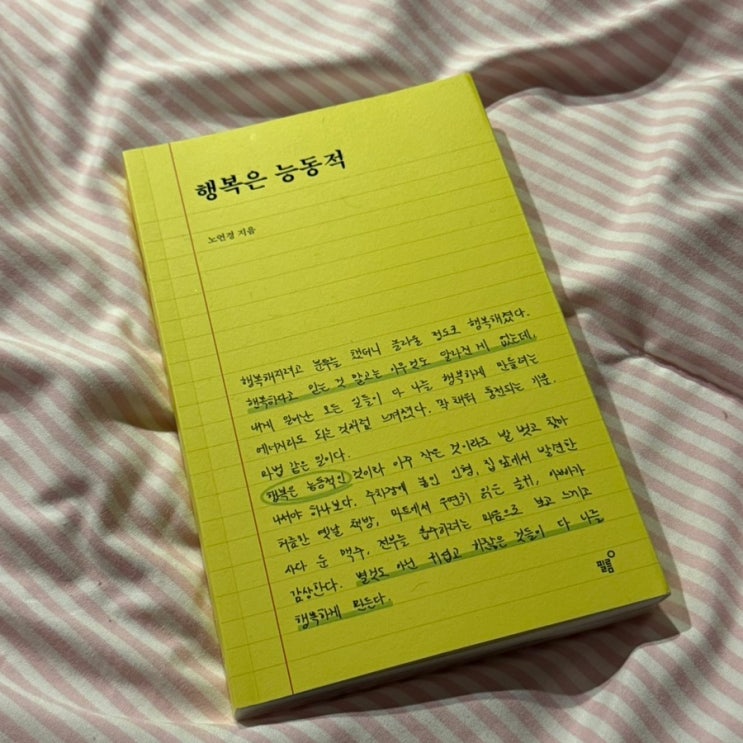 행복은 능동적
노연경 지음
행복해지려고 분투를 했더니 놀라울 정도로 행복해졌다.
행복하다고 믿는 것 말고는 아무것도 달라진 게 없는데,
내게 일어난 모든 일들이 다 나를 행복하게 만들려는
에너지라도 되는 것처럼 느껴졌다. 꽉 채워 충전되는 기분.
마법 같은 일이다.
행복은 능동적인 것이라 아주 작은 것이라도 발 벗고 찾아
나서야 하나 보다. 수치심에 붙인 인형, 집 앞에서 발견한
허름한 옛날 책방, 마트에서 우연히 읽은 글귀, 아빠가
사다 둔 맥주, 전부를 흡수하려는 마음으로 보고 느끼고
감상한다. 별것도 아닌 귀엽고 하찮은 것들이 다 나를
행복하게 만든다.
필름